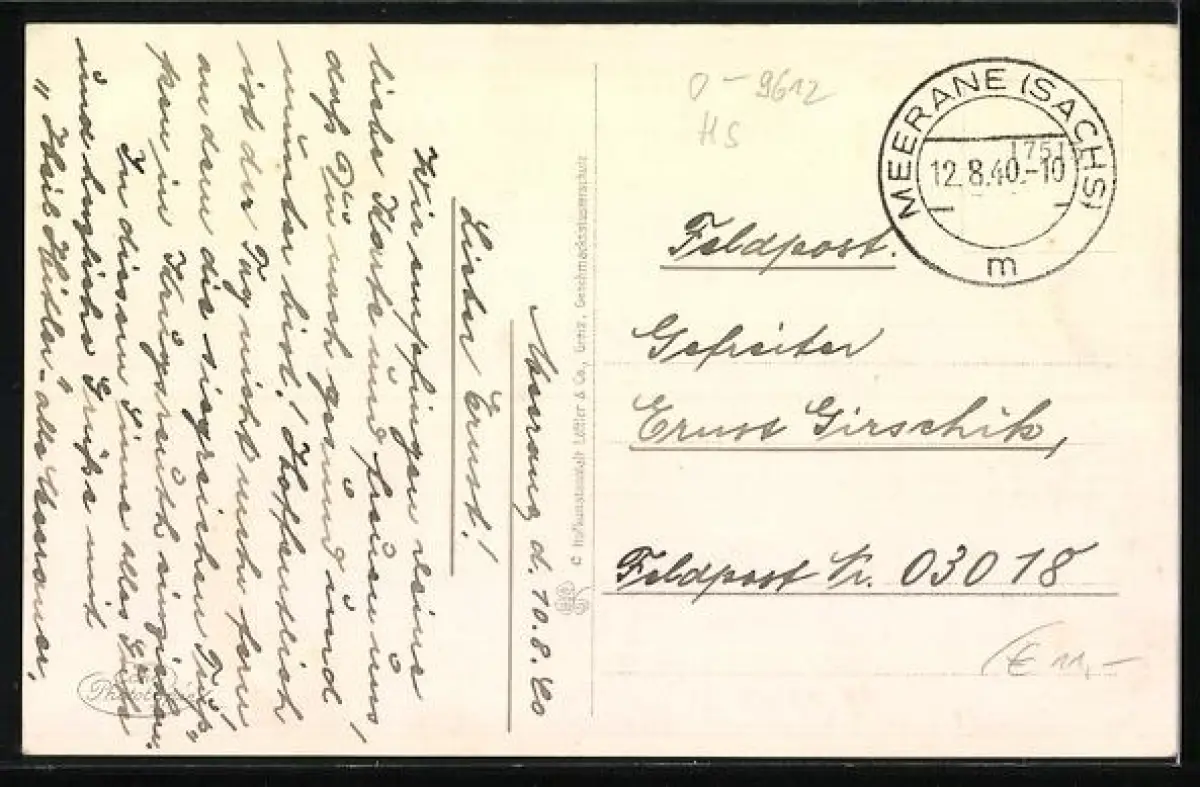 Meerane, d. 10.8.40
Lieber Ernst!
Wir empfingen deine
liebe Karte und freuen uns,
daß Du noch gesund und
munter bist. Hoffentlich
ist der Tag nicht mehr fern
an dem die siegreichen Trup-
pen in Kriegsreich einziehen.
In diesem Sinne alles Gute
und herzliche Grüße mit
"Heil Hitler" alle Meeraner.
© Hofkunstanstalt Löffler & Co., Greiz, Geschmacksmusterschutz
O-9612
HS
MEERANE (SACHS)
12.8.40.-10
m
Feldpost.
Gefreiter
Ernst Girschik,
Feldpost Nr. 03018
(€ 11,-